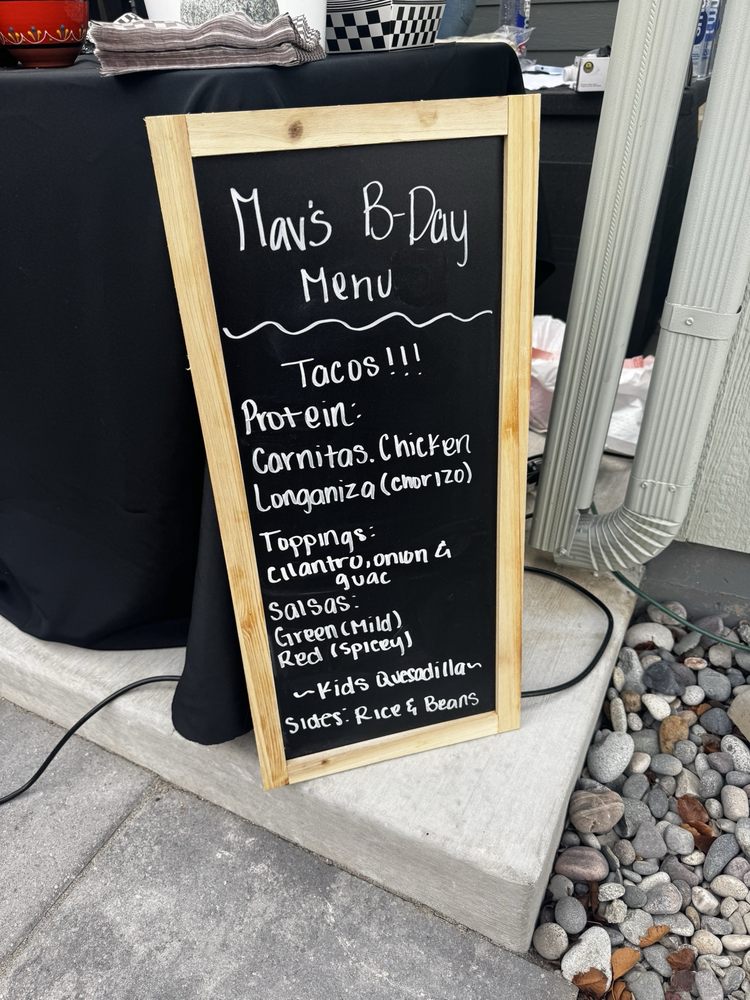 Mav's B-Day
Menu
Tacos!!!
Protein:
Carnitas. Chicken
Longaniza (chorizo)
Toppings:
cilantro, onion &
guac
Salsas:
Green (Mild)
Red (Spicey)
~Kids Quesadilla~
Sides: Rice & Beans